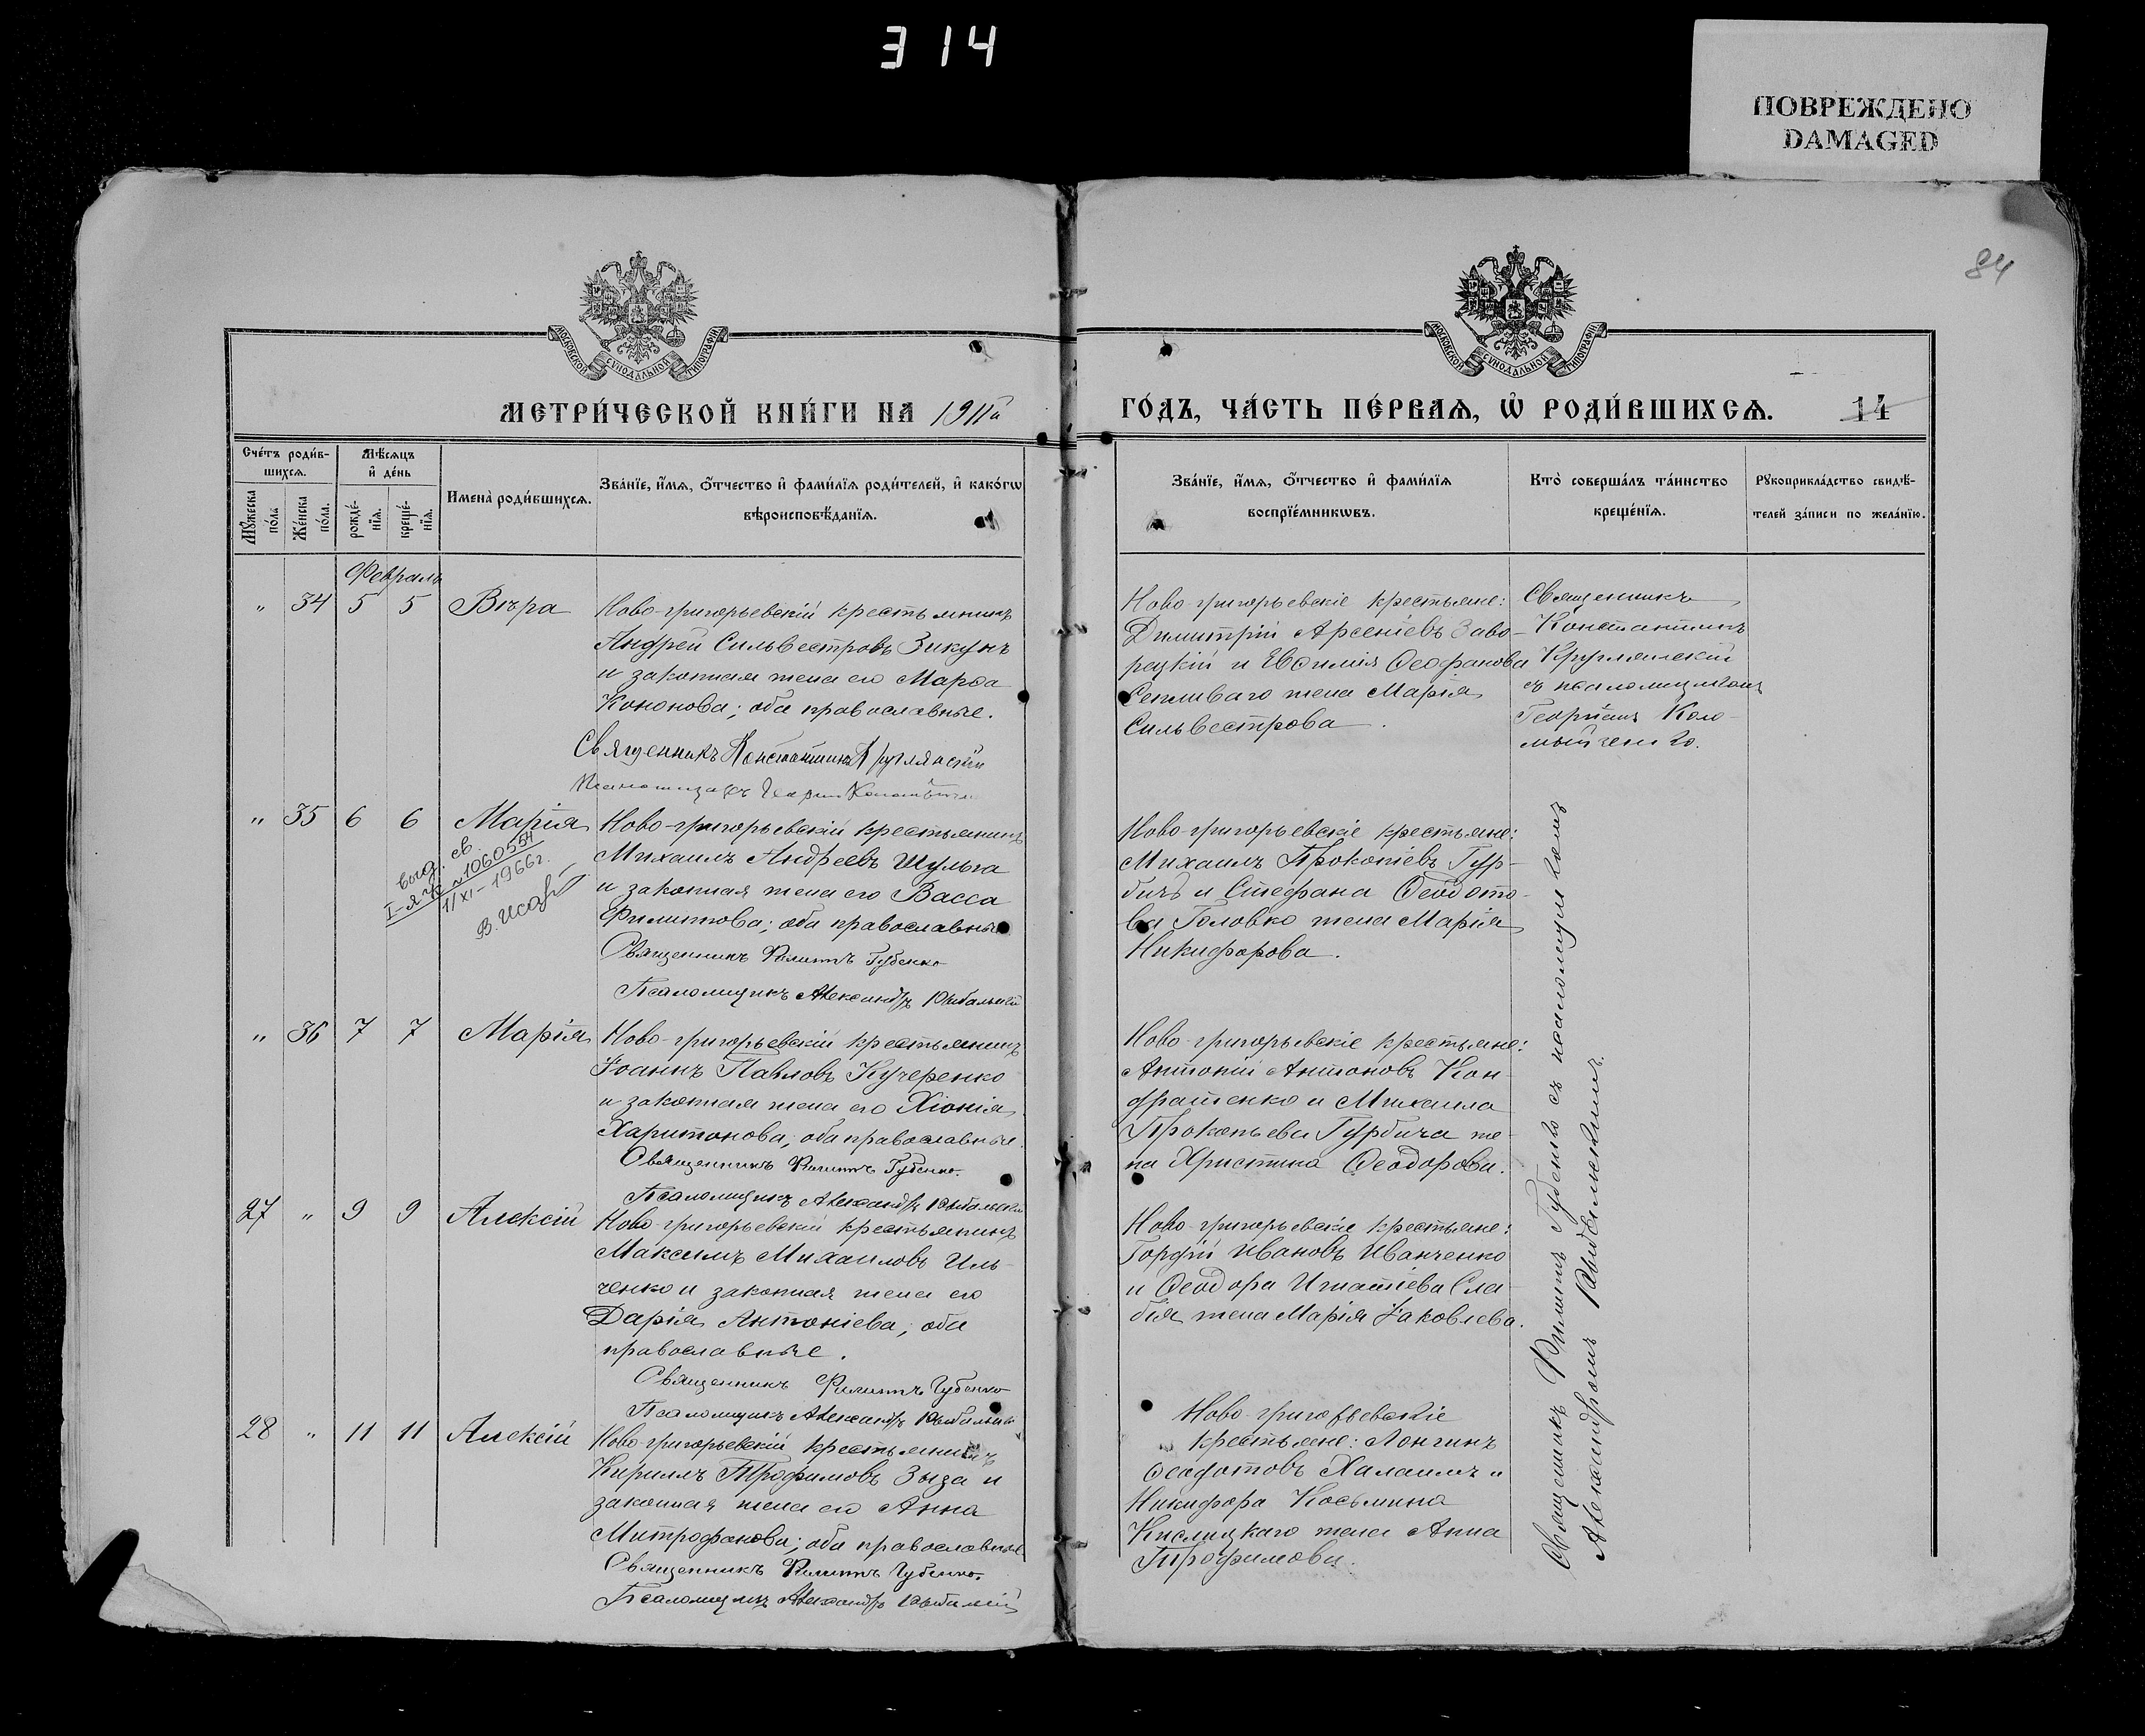 314
ПОВРЕЖДЕНО
DAMAGED
84
МОСКОВСКОЙ СѴНОДАЛЬНОЙ ТИПОГРАФІИ
МОСКОВСКОЙ СѴНОДАЛЬНОЙ ТИПОГРАФІИ
МЕТРИ́ЧЕСКОЙ КНИ́ГИ НА 1911й
ГО́ДЪ, ЧА́СТЬ ПЕ́РВАѦ, Ѡ҆ РОДИ́ВШИХСѦ. 14
Сче́тъ роди́в-
шихсѧ.
Мꙋ́жеска по́ла
Же́нска по́ла.
Мѣ́сѧцъ
и҆ де́нь
рожде́-
нїѧ.
креще́-
нїѧ.
Имена̀ роди́вшихсѧ.
Зва́нїе, и҆́мѧ, ѻ҆́тчество и҆ фами́лїѧ роди́телей, и҆ како́гѡ
вѣроисповѣ́данїѧ.
Зва́нїе, и҆́мѧ, ѻ҆́тчество и҆ фами́лїѧ
воспрїе́мникѡвъ.
Кто̀ соверша́лъ та́инство
креще́нїѧ.
Рꙋкоприкла́дство свидѣ́-
телей за́писи по жела́нїю.
Февраль
" 34 5 5 Вѣра
Ново-григорьевскій крестьянинъ
Андрей Сильвестровъ Зикунъ
и законная жена его Марѳа
Кононова; оба православные.
Священникъ Константинъ Круглянскій
Псаломщикъ Георгій
Ново-григорьевскіе крестьяне:
Димитрій Арсеніевъ Заво-
рецкій и Евѳимія Ѳеофанова
жена Марія
Сильвестрова.
Священникъ
Константинъ
Круглянскій
съ псаломщикомъ
Георгіемъ Коло-
мыйченко.
" 35 6 6 Марія
выд. св.
I-ЯЧ № 1060554
1/XI-1966г.
В. Исай
Ново-григорьевскій крестьянинъ
Михаилъ Андреевъ Шульга
и законная жена его Васса
Филиппова; оба православные
Священникъ Филиппъ Губенко
Псаломщикъ Александръ
Ново-григорьевскіе крестьяне:
Михаилъ Прокопіевъ Гур-
бичъ и Стефана Ѳеодото-
ва Головко жена Марія
Никифорова.
" 36 7 7 Марія
Ново-григорьевскій крестьянинъ
Іоаннъ Павловъ Кучеренко
и законная жена его Хіонія
Харитонова; оба православные.
Священникъ Филиппъ Губенко.
Псаломщикъ Александръ
Ново-григорьевскіе крестьяне:
Антоній Антоновъ Кон-
драшенко и Михаила
Прокопьева Гурбича же-
на Христина Ѳеодорова.
27 " 9 9 Алексій
Ново-григорьевскій крестьянинъ
Максимъ Михаиловъ Иль-
ченко и законная жена его
Дарія Антоніева; оба
православные.
Священникъ Филиппъ Губенко
Псаломщикъ Александръ
Ново-григорьевскіе крестьяне:
Гордій Ивановъ Иванченко
и Ѳеодора Игнатіева Сла-
бія жена Марія Іаковлева.
28 " 11 11 Алексій
Ново-григорьевскій крестьянинъ
Кириллъ Трофимовъ Зыза и
законная жена его Анна
Митрофанова; оба православные
Священникъ Филиппъ Губенко.
Псаломщикъ Александръ
Ново-григорьевскіе
крестьяне: Лонгинъ
Ѳеодотовъ Халаимъ и
Никифора Косьмина
Кислицкаго жена Анна
Трофимова.
Священникъ Филиппъ Губенко съ псаломщикомъ
Александромъ